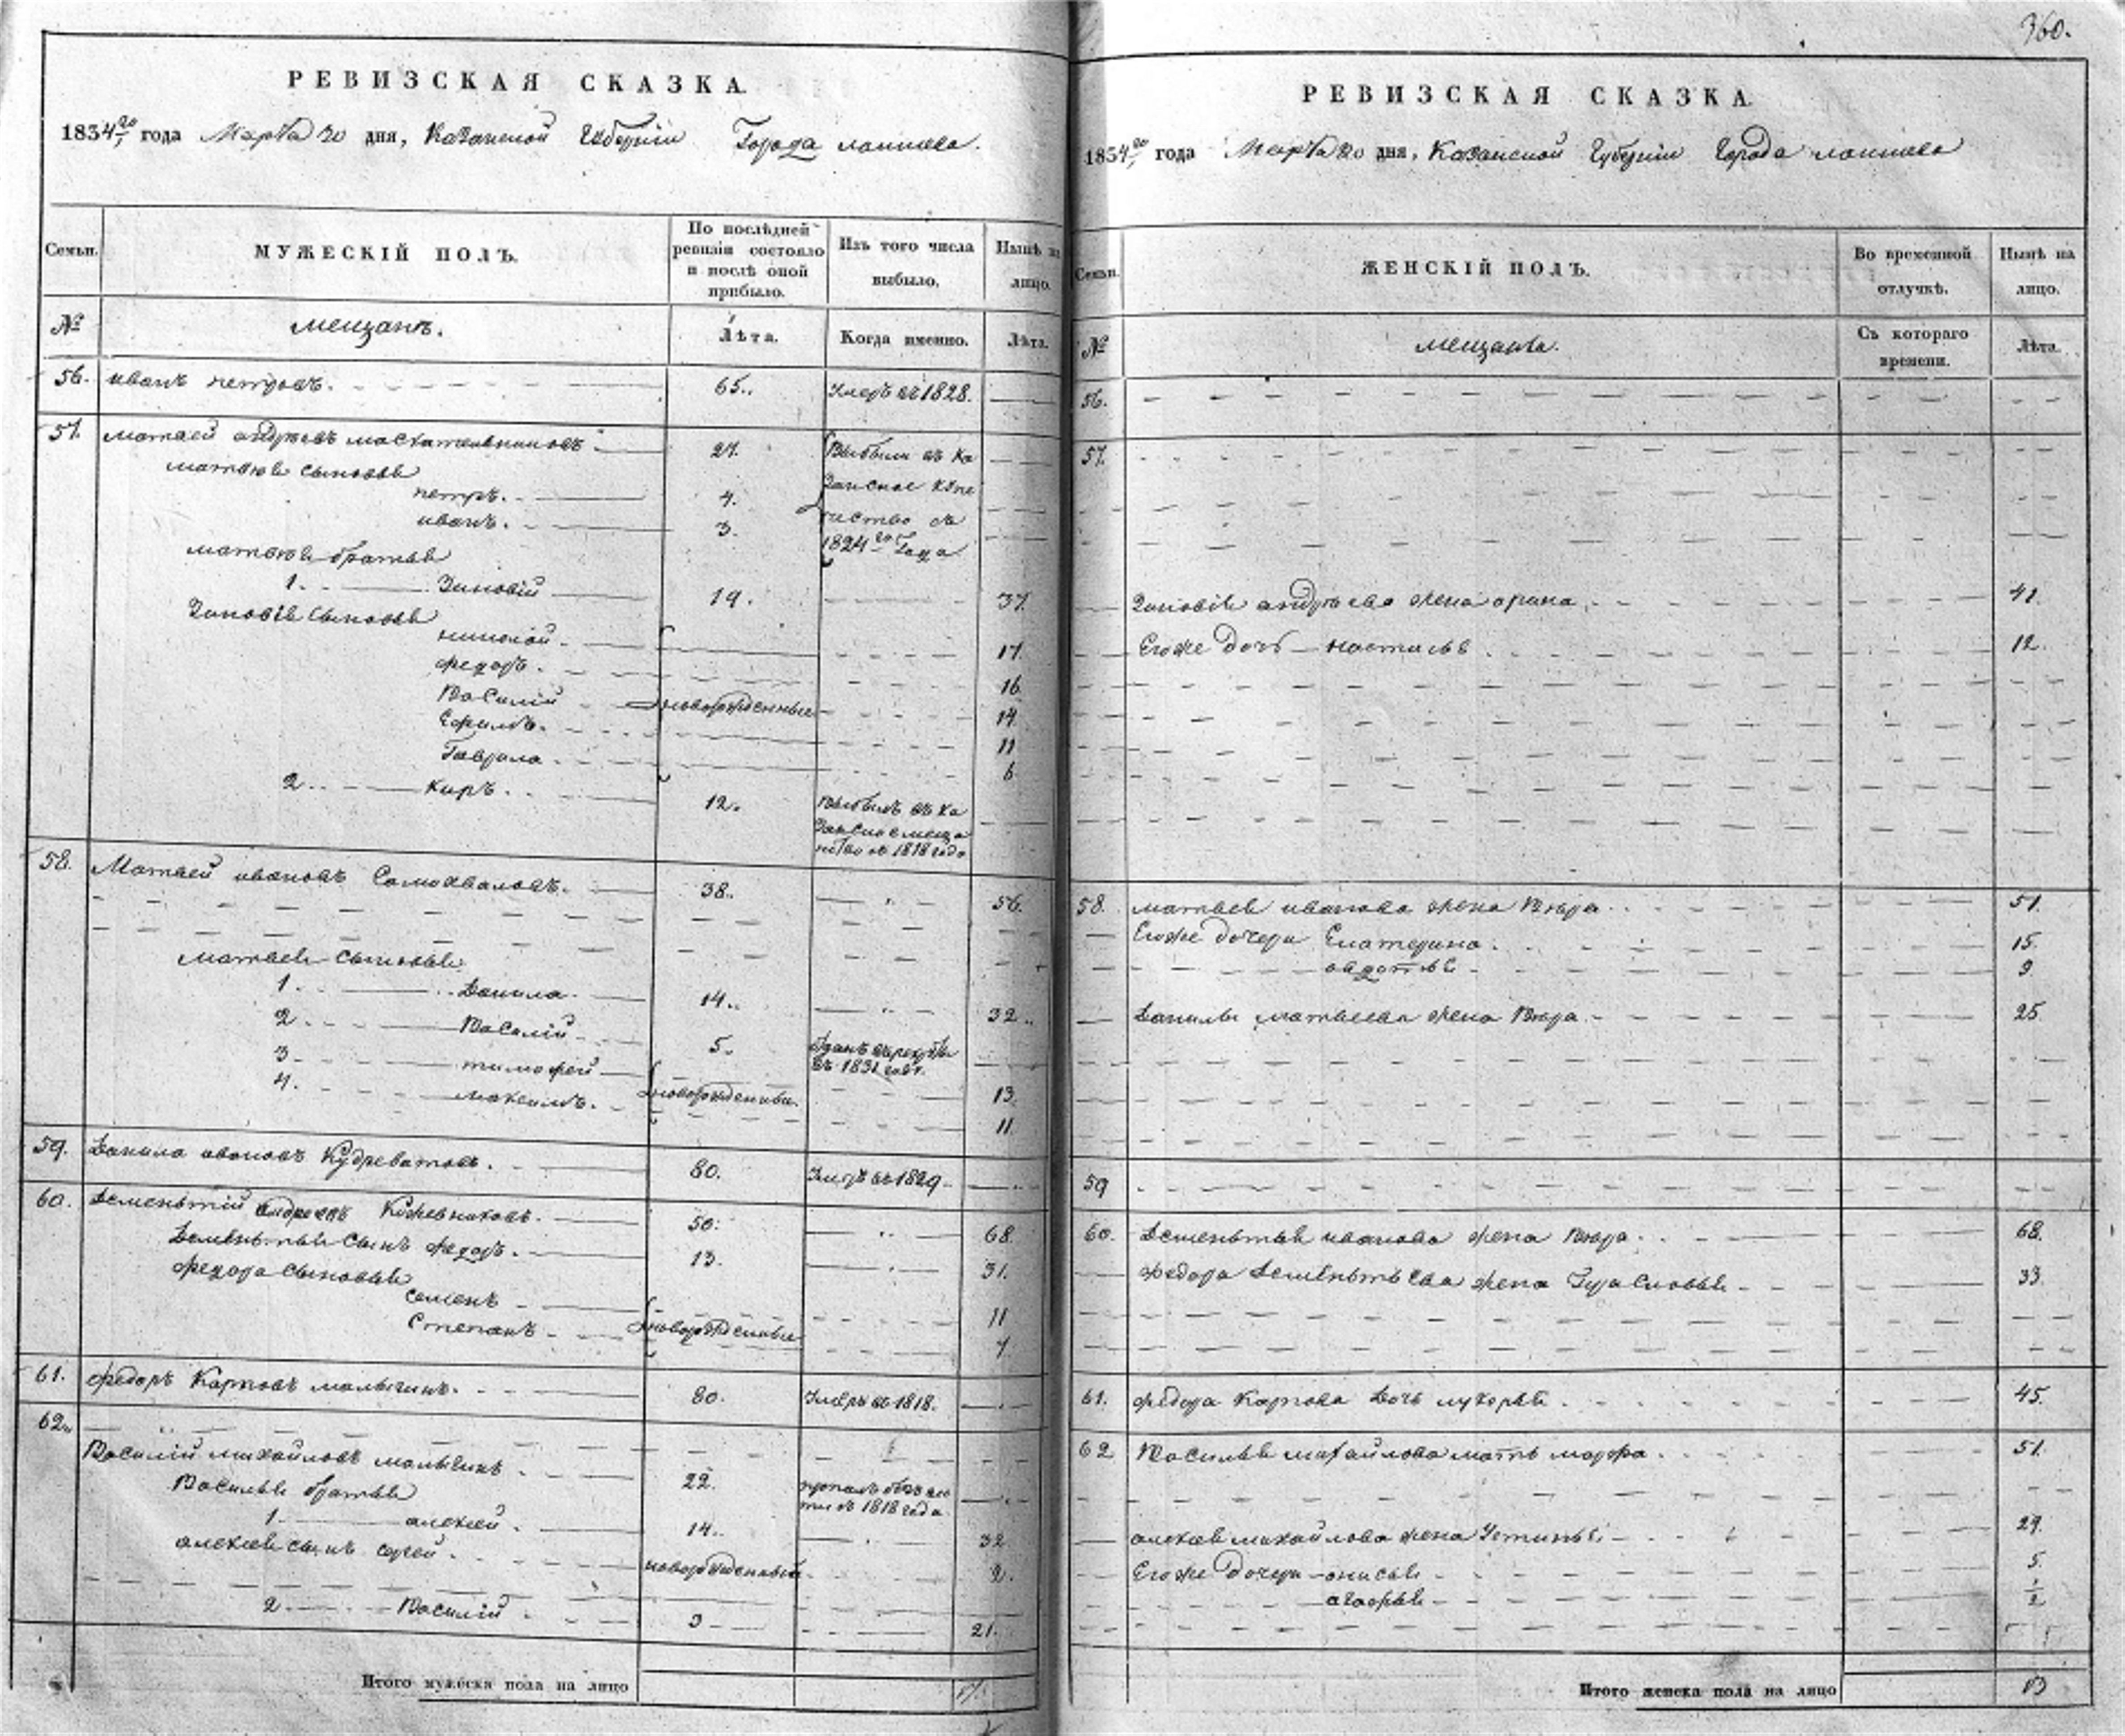 360.
РЕВИЗСКАЯ СКАЗКА.
1834 го года Марта 20 дня, Казанской Губернiи Города Лаишева.
Семьи.
МУЖЕСКIЙ ПОЛЪ.
По послѣдней ревизiи состояло и послѣ оной прибыло.
Изъ того числа выбыло.
Нынѣ на лицо.
№
Мещанъ.
Лѣта.
Когда именно.
Лѣта.
56. иванъ петровъ. 65. Умеръ въ 1828.
57. матвей андреевъ 27. Выбыли въ Ка
матвея сыновья занское купе
петръ. 4. чество съ
иванъ. 3. 1824 го Года
матвея братья
1. Зиновiй 19. 37.
Зиновiя сыновья
николай. 17.
федоръ. 16
Василiй новорожденные 14
Ефимъ. 11
Гаврила. 6
2. Киръ. 12. Выбылъ въ Ка
занское меща
нство въ 1818 года
58. Матвей ивановъ Самохваловъ. 38. 56.
Матвея сыновья
1. Данила 14. 32
2. Василiй 5. въ 1831 годѣ.
3. тимофей новорожденные 13
4. максимъ. 11
59. Данила ивановъ Кудреватовъ. 80. Умеръ въ 1829
60. Дементiй андреевъ Кожевниковъ. 50. 68
Дементья сынъ федоръ. 13. 31.
федора сыновья
семенъ новорожденные 11
Степанъ 7
61. федоръ Карповъ малыгинъ. 80. Умеръ въ 1818.
62. Василiй михайловъ малыгинъ 22. съ 1818 года
Василья братья
1. алексей. 14. 32
алексея сынъ сергей. новорожденный 2.
2. Василiй 3 21.
Итого мужеска пола на лицо 17.
РЕВИЗСКАЯ СКАЗКА.
1834 го года Марта 20 дня, Казанской Губернiи Города Лаишева
Семьи.
ЖЕНСКIЙ ПОЛЪ.
Во временной отлучкѣ.
Нынѣ на лицо.
№
Мещанъ.
Съ котораго времени.
Лѣта.
56.
57.
Зиновiя андреева жена арина. 41.
Егоже дочь настасья 12.
58. матвея иванова жена 51.
Егоже дочери Екатерина. 15.
авдотья 9
Данилы матвеева жена 25.
59
60. Дементья иванова жена 68.
федора Дементьева жена 33.
61. федора Карпова дочь лукерья. 45.
62 Василья михайлова мать марфа. 51.
алексея михайлова жена Устинья 29.
Егоже дочери анисья 5.
агафья 1/2
Итого женска пола на лицо 13